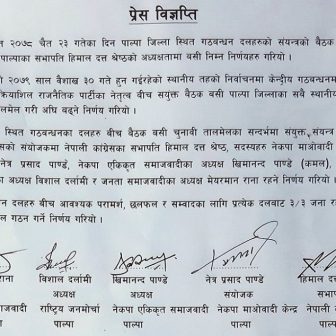 प्रेस विज्ञप्ति
२०७८ चैत २३ गतेका दिन पाल्पा जिल्ला स्थित गठवन्धन दलहरुको संयन्त्रको बैठक
पाल्पाका सभापति हिमाल दत्त श्रेष्ठको अध्यक्षतामा बसी निम्न निर्णयहरु गरियो ।
२०७९ साल बैशाख ३० गते हुन गईरहेको स्थानीय तहको निर्वाचनमा केन्द्रीय गठवन्धन
क्रियाशिल राजनैतिक पार्टीका नेतृत्व बीच सयुक्त बैठक बसी पाल्पा जिल्लाका सबै स्थानीय
तालमेल गरी अघि बढ्ने निर्णय गरियो ।
स्थित गठवन्धनका दलहरु बीच बैठक बसी चुनावी तालमेलका सन्दर्भमा संयुक्त संयन्त्र
को संयोजकमा नेपाली कांग्रेसका सभापति हिमाल दत्त श्रेष्ठ, सदस्यहरु नेकपा माओवादी
नेत्र प्रसाद पाण्डे, नेकपा एकिकृत समाजवादीका अध्यक्ष खिमानन्द पाण्डे (कमल),
का अध्यक्ष विशाल दर्लामी र जनता समाजवादीका अध्यक्ष मेयरमान राना रहने निर्णय गरियो ।
दलहरु बीच आवश्यक परामर्श, छलफल र सम्वादका लागि प्रत्येक दलबाट ३/३ जना
ल गठन गर्ने निर्णय गरियो ।
राना विशाल दर्लामी खिमानन्द पाण्डे नेत्र प्रसाद पाण्डे हिमाल दत्त
अध्यक्ष अध्यक्ष संयोजक सभापति
माजवादी राष्ट्रिय जनमोर्चा नेकपा एकिकृत समाजवादी नेकपा माओवादी केन्द्र नेपाली
पाल्पा पाल्पा पाल्पा